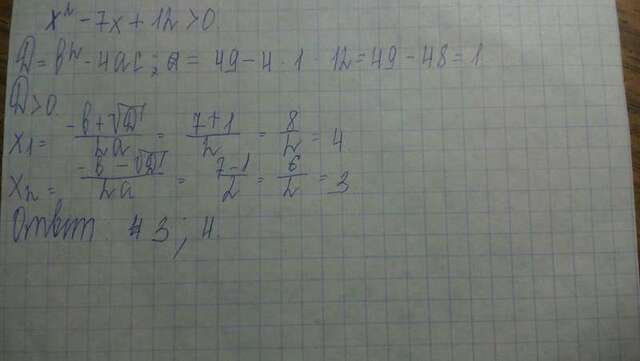 x² - 7x + 12 > 0
D = b² - 4ac; D = 49 - 4 · 1 · 12 = 49 - 48 = 1
D > 0.
x₁ = (-b + √D)/(2a) = (7 + 1)/2 = 8/2 = 4
x₂ = (-b - √D)/(2a) = (7 - 1)/2 = 6/2 = 3
Ответ 3; 4.